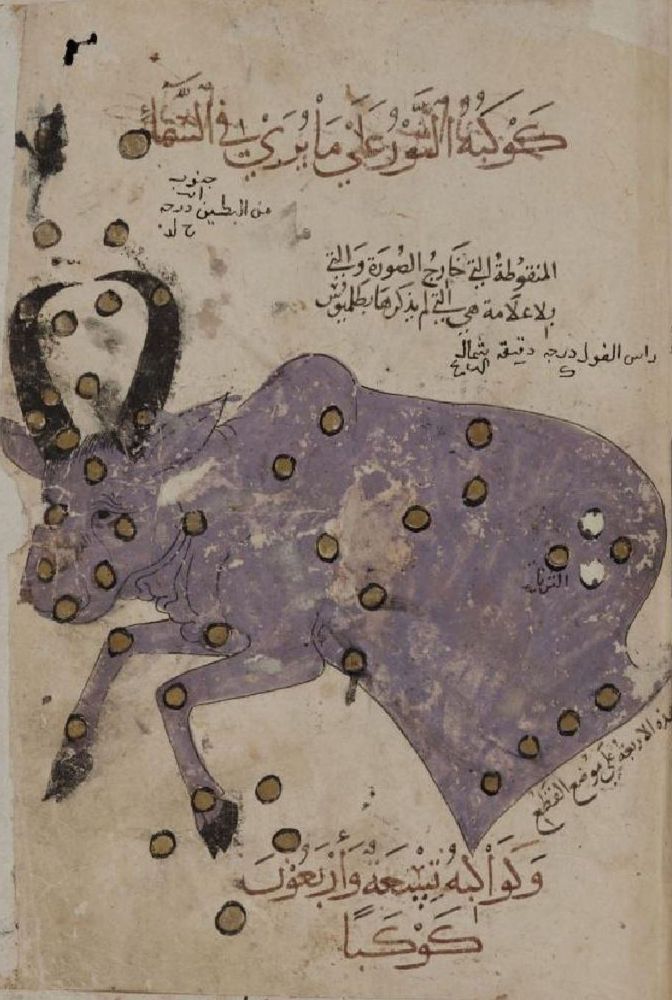 كَوْكَبَةُ الثَّوْرِ عَلَى مَا يُرَى فِي السَّمَاءِ
جنوب
من البطين درجه
المنقوطة التي خَارج الصُورَة وَالتي
بلا علَامة هي التي لم يذكرها بطلميوس
راس الغول درجه دقيقه شمال
الثريا
الاربعة على موضع القطع
وَكَوَاكبهُ تِسْعَة وَأرْبَعُونَ
كَوْكَبًا